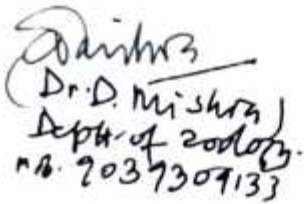 Dr. D. Mishra
Deptt. of Zoology.
m.b. 9039309133